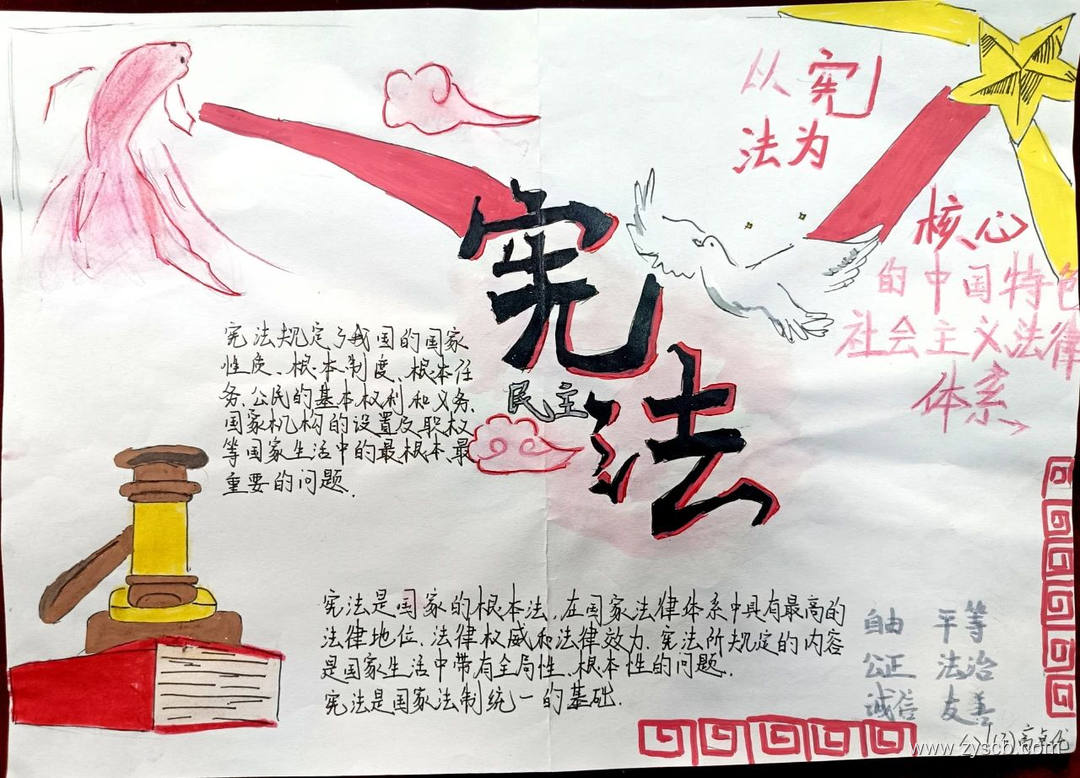 从宪
法为
核心
的中国特色
社会主义法律
体系
宪法
民主
宪法规定了我国的国家
性质、根本制度、根本任
务、公民的基本权利和义务、
国家机构的设置及职权
等国家生活中的最根本最
重要的问题.
宪法是国家的根本法,在国家法律体系中具有最高的
法律地位、法律权威和法律效力.宪法所规定的内容
是国家生活中带有全局性、根本性的问题.
宪法是国家法制统一的基础.
自由 平等
公正 法治
诚信 友善
www.zyscb.com